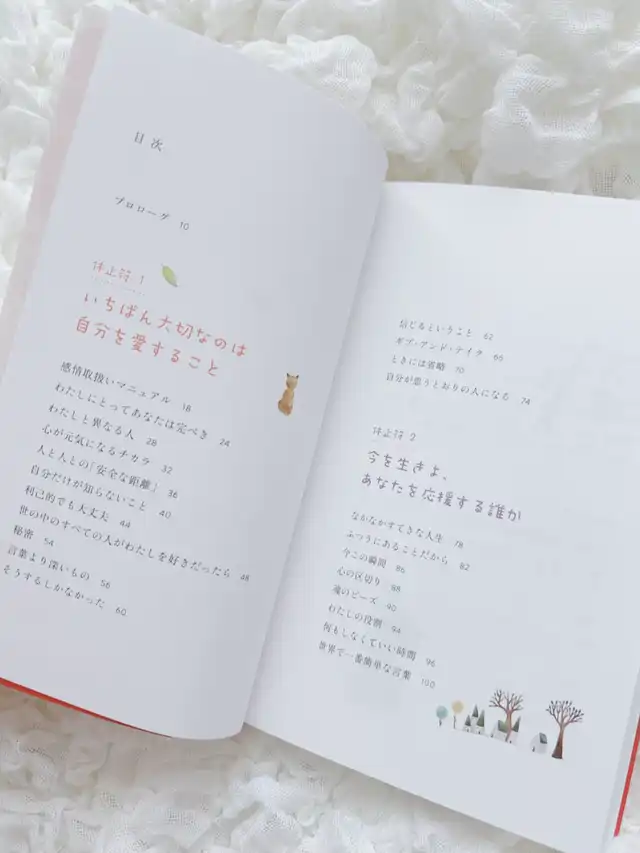 目次
プロローグ 10
休止符 1
いちばん大切なのは
自分を愛すること
感情取扱いマニュアル 18
わたしにとってあなたは完ぺき 24
わたしと異なる人 28
心が元気になるチカラ 32
人と人との「安全な距離」 36
自分だけが知らないこと 40
利己的でも大丈夫 44
世の中のすべての人がわたしを好きだったら 48
秘密 54
言葉より深いもの 56
そうするしかなかった 60
信じるということ 62
ギブ・アンド・テイク 66
ときには省略 70
自分が思うとおりの人になる 74
休止符 2
今を生きよ、
あなたを応援する誰か
なかなかすてきな人生 78
ふつうにあることだから 82
今この瞬間 86
心の区切り 88
魂のピース 90
わたしの役割 94
何もしなくていい時間 96
世界で一番簡単な言葉 100